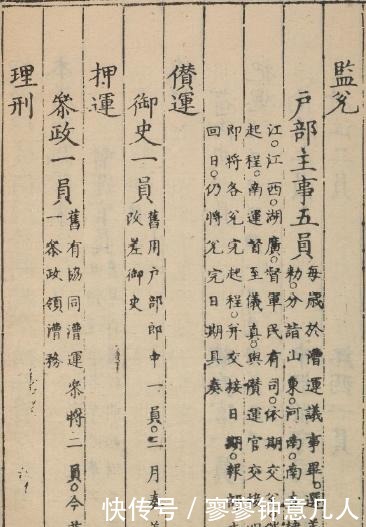 監兌
戶部主事五員
每歲於漕運議事畢選
勅分詣山東河南南直隸
江江西湖廣督軍民有司依期交
起程南運督至儀真與儹運官交接
即將各兌完起程并交接日期報
回日仍將兌完日期具奏
儹運
御史一員
舊用戶部郎中一員二月奏
改差御史
押運
叅政一員
舊有協同漕運叅將二員今
一叅政領漕務
理刑
快传号/寥寥钟意几人